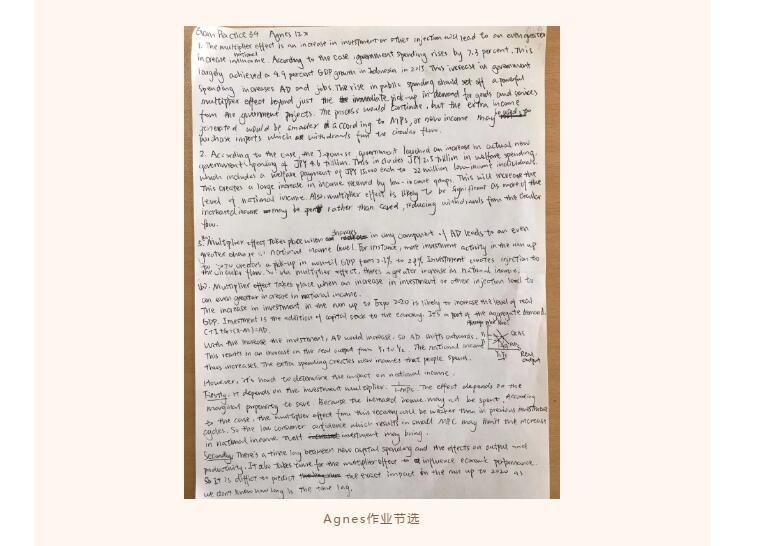 Exam Practice 34 Agnes 12x
1. The multiplier effect is an increase in investment or other injection will lead to an even greater
increase in national income. According to the case, government spending rises by 7.3 percent. This
largely achieved a 4.9 percent GDP growth in Indonesia in 2015. This increase in government
spending increases AD and jobs. The rise in public spending should set off a powerful
multiplier effect beyond just the immediate pick-up in demand for goods and services
from the government projects. The process would continue, but the extra income
generated would be smaller according to MPS, or new income may be used to
purchase imports which withdrawals from the circular flow.
2. According to the case, the Japanese government launched an increase in actual new
government spending of JPY 4.6 trillion. This includes JPY 2.5 trillion in welfare spending,
which included a welfare payment of JPY 15,000 each to 22 million low-income individuals.
This creates a large increase in income received by low-income groups. This will increase the
level of national income. Also multiplier effect is likely to be significant as most of the
increased income may be spent rather than saved, reducing withdrawals from the circular
flow.
3. Multiplier effect takes place when changes in any component of AD leads to an even
greater change in national income level. For instance, more investment activity in the run up
to creates a pick-up in non-oil GDP from to Investment creates injection to
the circular flow. via multiplier effect, there's a greater increase in national income.
(b). Multiplier effect takes place when an increase in investment or other injection lead to
an even greater increase in national income.
The increase in investment in the run up to Expo 2020 is likely to increase the level of real
GDP. Investment is the addition of capital stock to the economy. It's a part of the aggregate demand.
C+I+G+(X-M)=AD.
With the increase the investment, AD would increase. so AD shifts outwards.
This results in an increase on the real output from Y1 to Y2. The national income
thus increases. The extra spending creates new incomes that people spend.
Real
output
However, it's hard to determine the impact on national income.
Firstly, it depends on the investment multiplier. 1/1-MPC The effect depends on the
marginal propensity to save. Because the increased income may not be spent. According
to the case, the multiplier effect from this recovery will be weaker than in previous investment
cycles. So the low consumer confidence which results in small MPC may limit the increase
in national income that investment may bring.
Secondly, There's a time lag between new capital spending and the effects on output and
productivity. It also takes time for the multiplier effect to influence economic performance.
So It is difficult to predict the exact impact in the run up to 2020 as
we don't know how long is the time lag.
Agnes作业节选